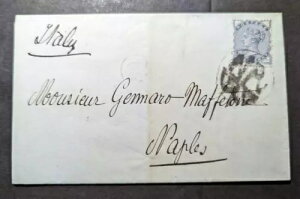 Italy
Monsieur Gennaro Maffettone
Naples